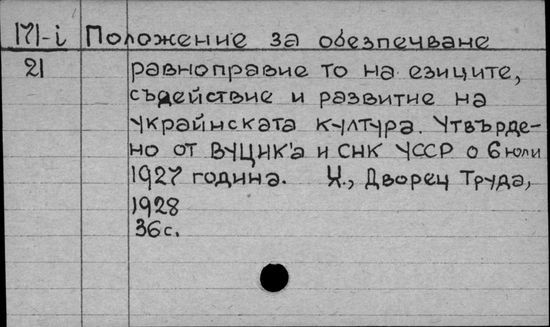 171-i Положение за обезпечване
21 равноправие то на езиците,
съдействие и развитие на
украйнската култура. Утвърде-
но от ВУЦИК'а и СНК УССР о 6 юли
1927 година. Х., Дворец Труда,
1928
36 с.